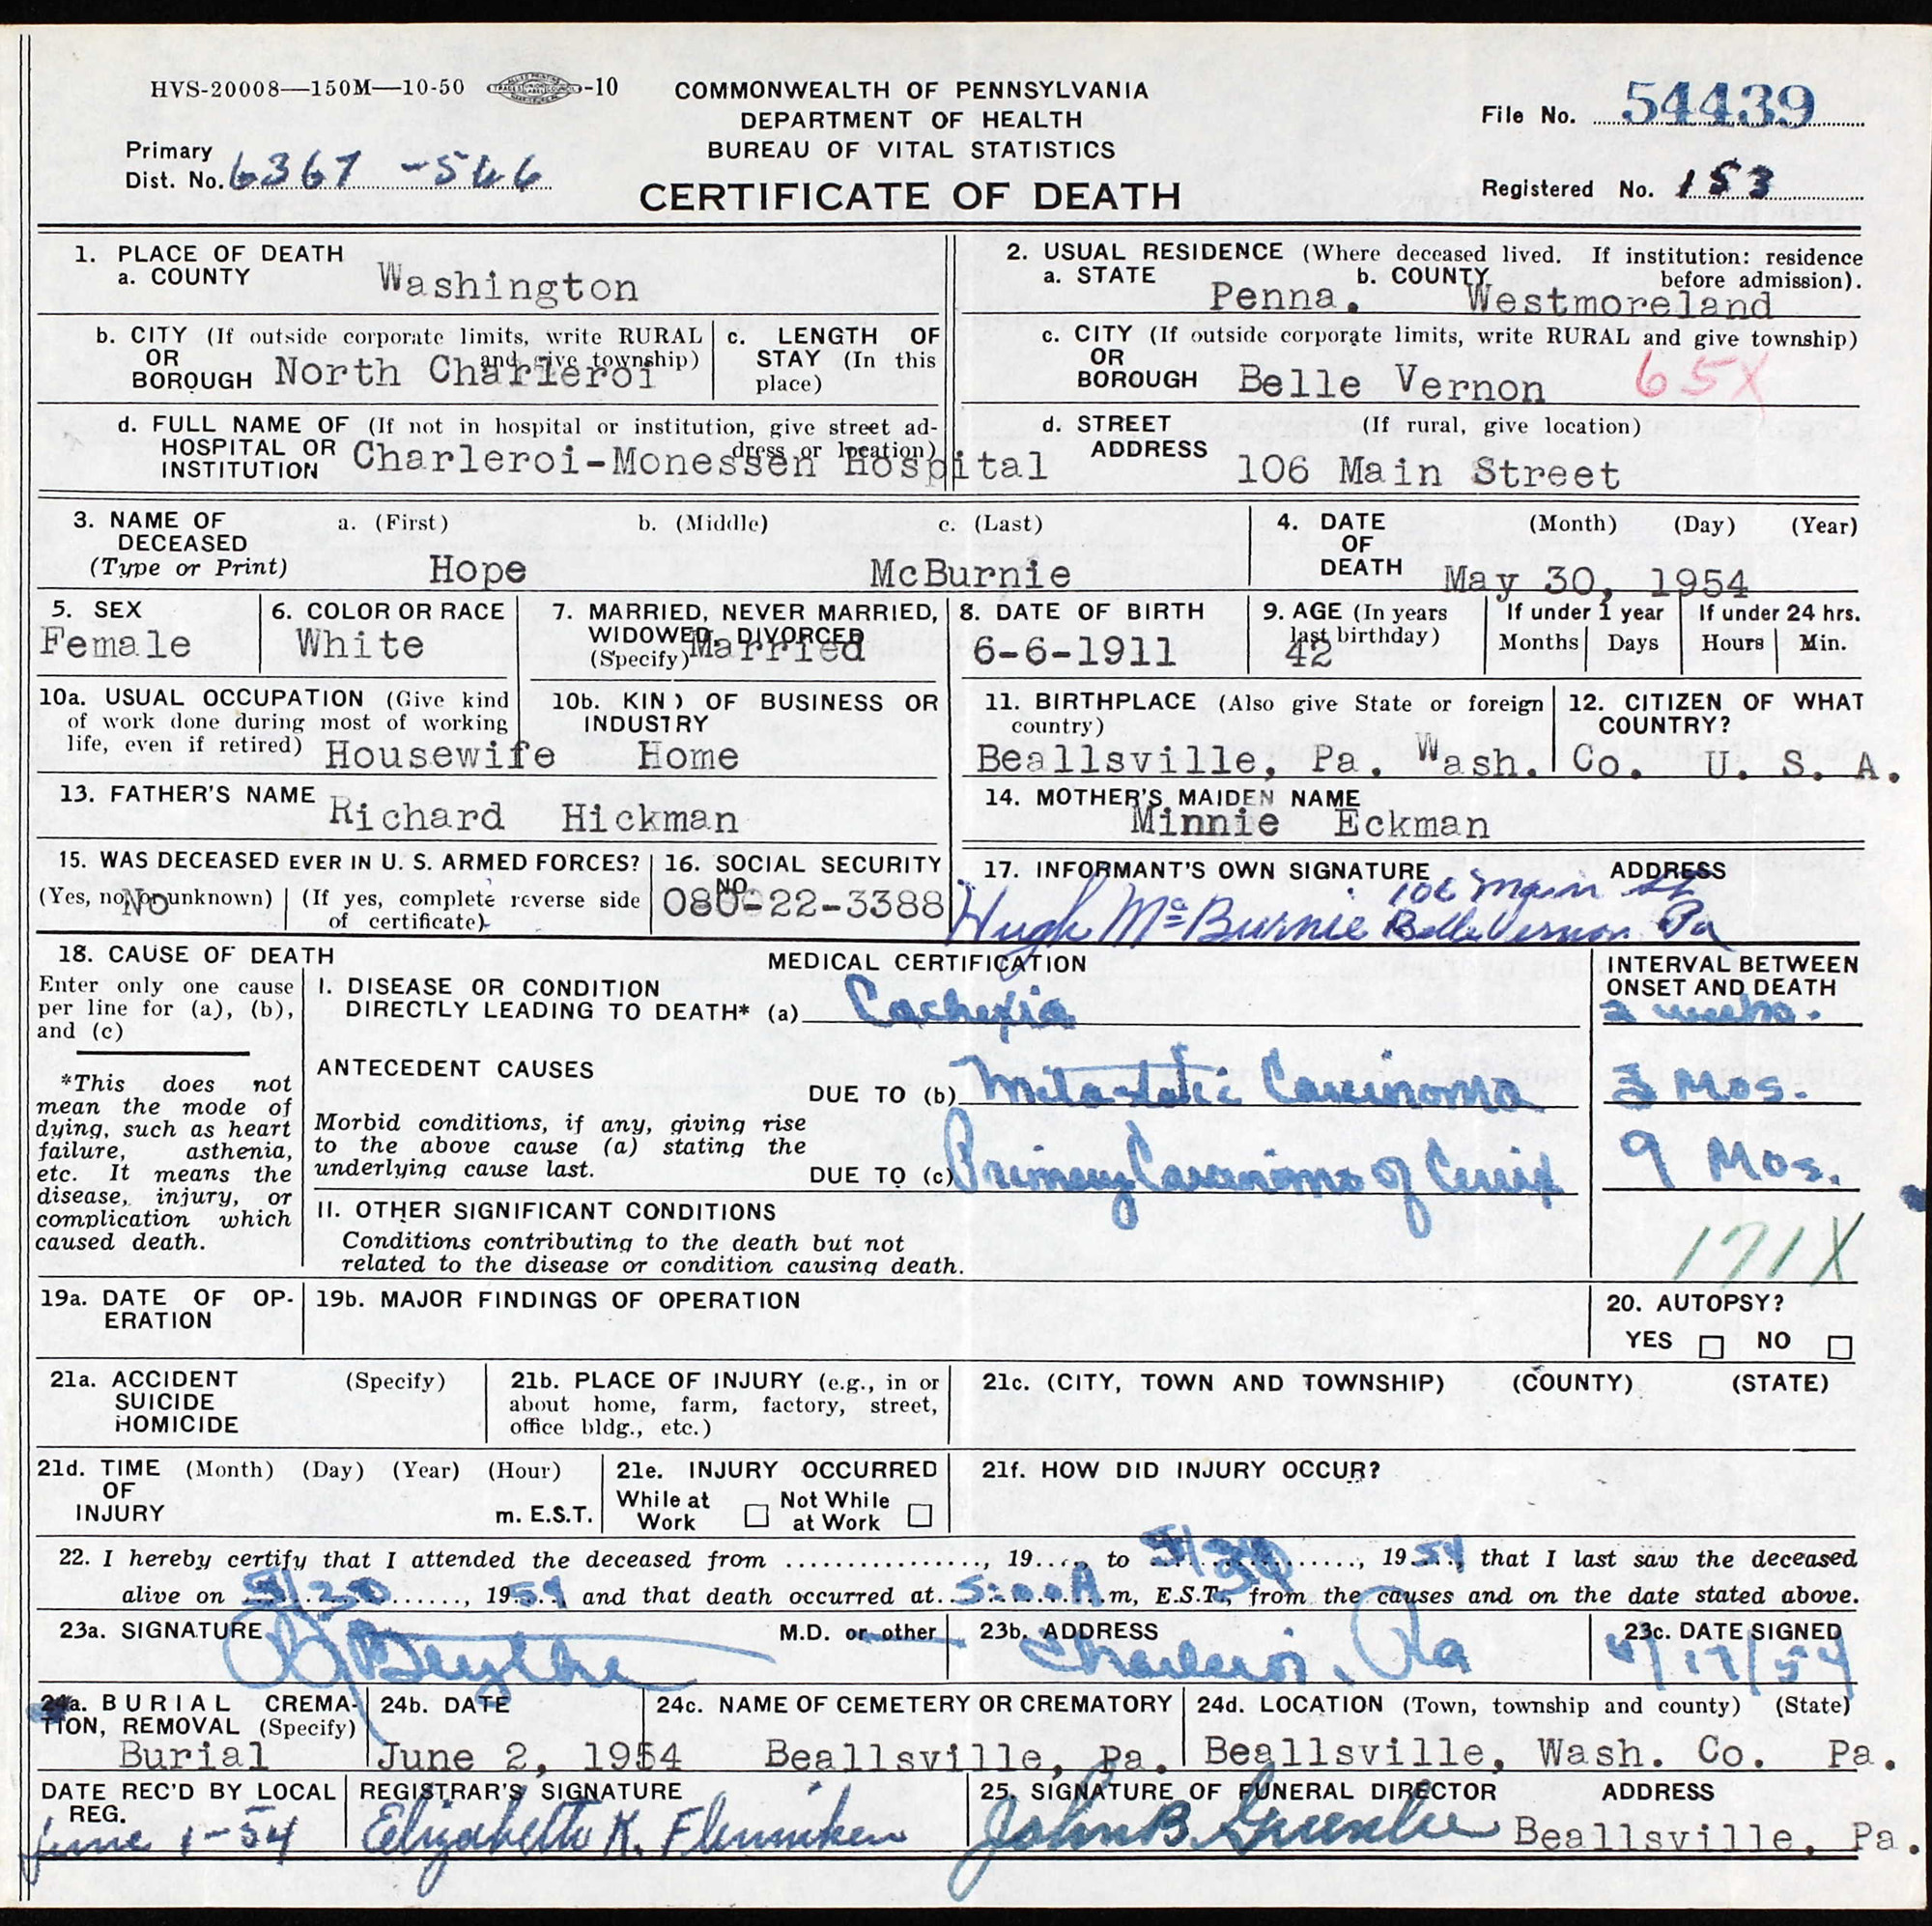 HVS-20008—150M—10-50 -10
COMMONWEALTH OF PENNSYLVANIA
DEPARTMENT OF HEALTH
BUREAU OF VITAL STATISTICS
CERTIFICATE OF DEATH
File No. 54439
Primary
Dist. No. 6367 -566
Registered No. 153
1. PLACE OF DEATH
a. COUNTY Washington
b. CITY (If outside corporate limits, write RURAL
OR and give township)
BOROUGH North Charleroi
c. LENGTH OF
STAY (In this
place)
d. FULL NAME OF (If not in hospital or institution, give street ad-
HOSPITAL OR dress or location)
INSTITUTION Charleroi-Monessen Hospital
2. USUAL RESIDENCE (Where deceased lived. If institution: residence
before admission).
a. STATE Penna. b. COUNTY Westmoreland
c. CITY (If outside corporate limits, write RURAL and give township)
OR
BOROUGH Belle Vernon 65X
d. STREET (If rural, give location)
ADDRESS 106 Main Street
3. NAME OF a. (First) b. (Middle) c. (Last)
DECEASED
(Type or Print) Hope McBurnie
4. DATE (Month) (Day) (Year)
OF
DEATH May 30, 1954
5. SEX
Female
6. COLOR OR RACE
White
7. MARRIED, NEVER MARRIED,
WIDOWED, DIVORCED
(Specify) Married
8. DATE OF BIRTH
6-6-1911
9. AGE (In years
last birthday)
42
If under 1 year
Months Days
If under 24 hrs.
Hours Min.
10a. USUAL OCCUPATION (Give kind
of work done during most of working
life, even if retired) Housewife
10b. KIND OF BUSINESS OR
INDUSTRY
Home
11. BIRTHPLACE (Also give State or foreign
country)
Beallsville, Pa. Wash. Co.
12. CITIZEN OF WHAT
COUNTRY?
U. S. A.
13. FATHER'S NAME Richard Hickman
14. MOTHER'S MAIDEN NAME
Minnie Eckman
15. WAS DECEASED EVER IN U. S. ARMED FORCES?
(Yes, no, or unknown) No (If yes, complete reverse side
of certificate)
16. SOCIAL SECURITY
NO.
080-22-3388
17. INFORMANT'S OWN SIGNATURE ADDRESS
Hugh McBurnie 106 Main St
Belle Vernon Pa
18. CAUSE OF DEATH
Enter only one cause
per line for (a), (b),
and (c)
*This does not
mean the mode of
dying, such as heart
failure, asthenia,
etc. It means the
disease, injury, or
complication which
caused death.
MEDICAL CERTIFICATION
INTERVAL BETWEEN
ONSET AND DEATH
I. DISEASE OR CONDITION
DIRECTLY LEADING TO DEATH* (a) Cachexia 2 weeks.
ANTECEDENT CAUSES
DUE TO (b) Metastatic Carcinoma 3 Mos.
Morbid conditions, if any, giving rise
to the above cause (a) stating the
underlying cause last.
DUE TO (c) Primary Carcinoma of Cervix 9 Mos.
II. OTHER SIGNIFICANT CONDITIONS
Conditions contributing to the death but not
related to the disease or condition causing death.
171X
19a. DATE OF OP-
ERATION
19b. MAJOR FINDINGS OF OPERATION
20. AUTOPSY?
YES NO
21a. ACCIDENT (Specify)
SUICIDE
HOMICIDE
21b. PLACE OF INJURY (e.g., in or
about home, farm, factory, street,
office bldg., etc.)
21c. (CITY, TOWN AND TOWNSHIP) (COUNTY) (STATE)
21d. TIME (Month) (Day) (Year) (Hour)
OF
INJURY m. E.S.T.
21e. INJURY OCCURRED
While at Work Not While at Work
21f. HOW DID INJURY OCCUR?
22. I hereby certify that I attended the deceased from ................, 19...., to 5/30, 1954, that I last saw the deceased
alive on 5/30, 1954 and that death occurred at 5:00 A m, E.S.T., from the causes and on the date stated above.
23a. SIGNATURE M.D. or other
23b. ADDRESS
Charleroi, Pa
23c. DATE SIGNED
24a. BURIAL CREMA-
TION, REMOVAL (Specify)
Burial
24b. DATE
June 2, 1954
24c. NAME OF CEMETERY OR CREMATORY
Beallsville, Pa.
24d. LOCATION (Town, township and county) (State)
Beallsville, Wash. Co. Pa.
DATE REC'D BY LOCAL
REG.
June 1-54
REGISTRAR'S SIGNATURE
Elizabeth K. Flenniken
25. SIGNATURE OF FUNERAL DIRECTOR ADDRESS
John B Greenlee Beallsville, Pa.